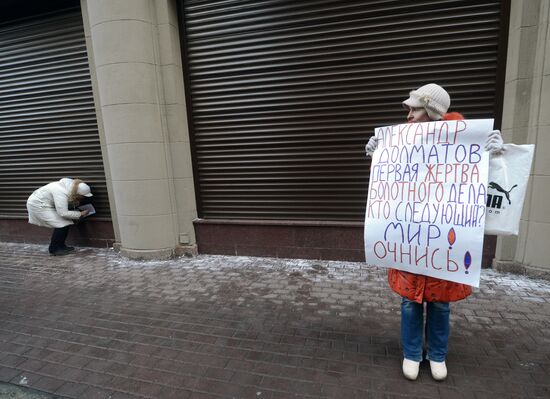 АЛЕКСАНДР
ДОЛМАТОВ
ПЕРВАЯ ЖЕРТВА
БОЛОТНОГО ДЕЛА
КТО СЛЕДУЮЩИЙ?
МИР!
ОЧНИСЬ!